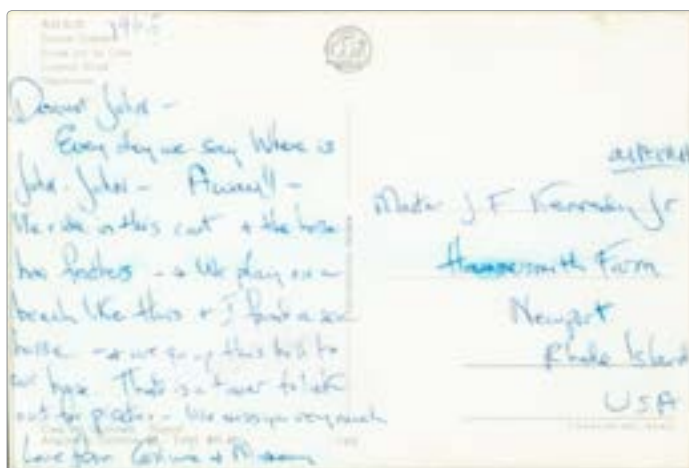 Dearest John -
Every day we say Where is
John-John - Away!! -
We ride in this cart + the horse
has feathers - + We play on a
beach like this + I found a sea
horse - + we go up this hill to
our house. There is a tower to look
out for pirates - We miss you very much
Love from Caroline + Mommy
AIR MAIL
Master J. F. Kennedy Jr
Hammersmith Farm
Newport
Rhode Island
USA